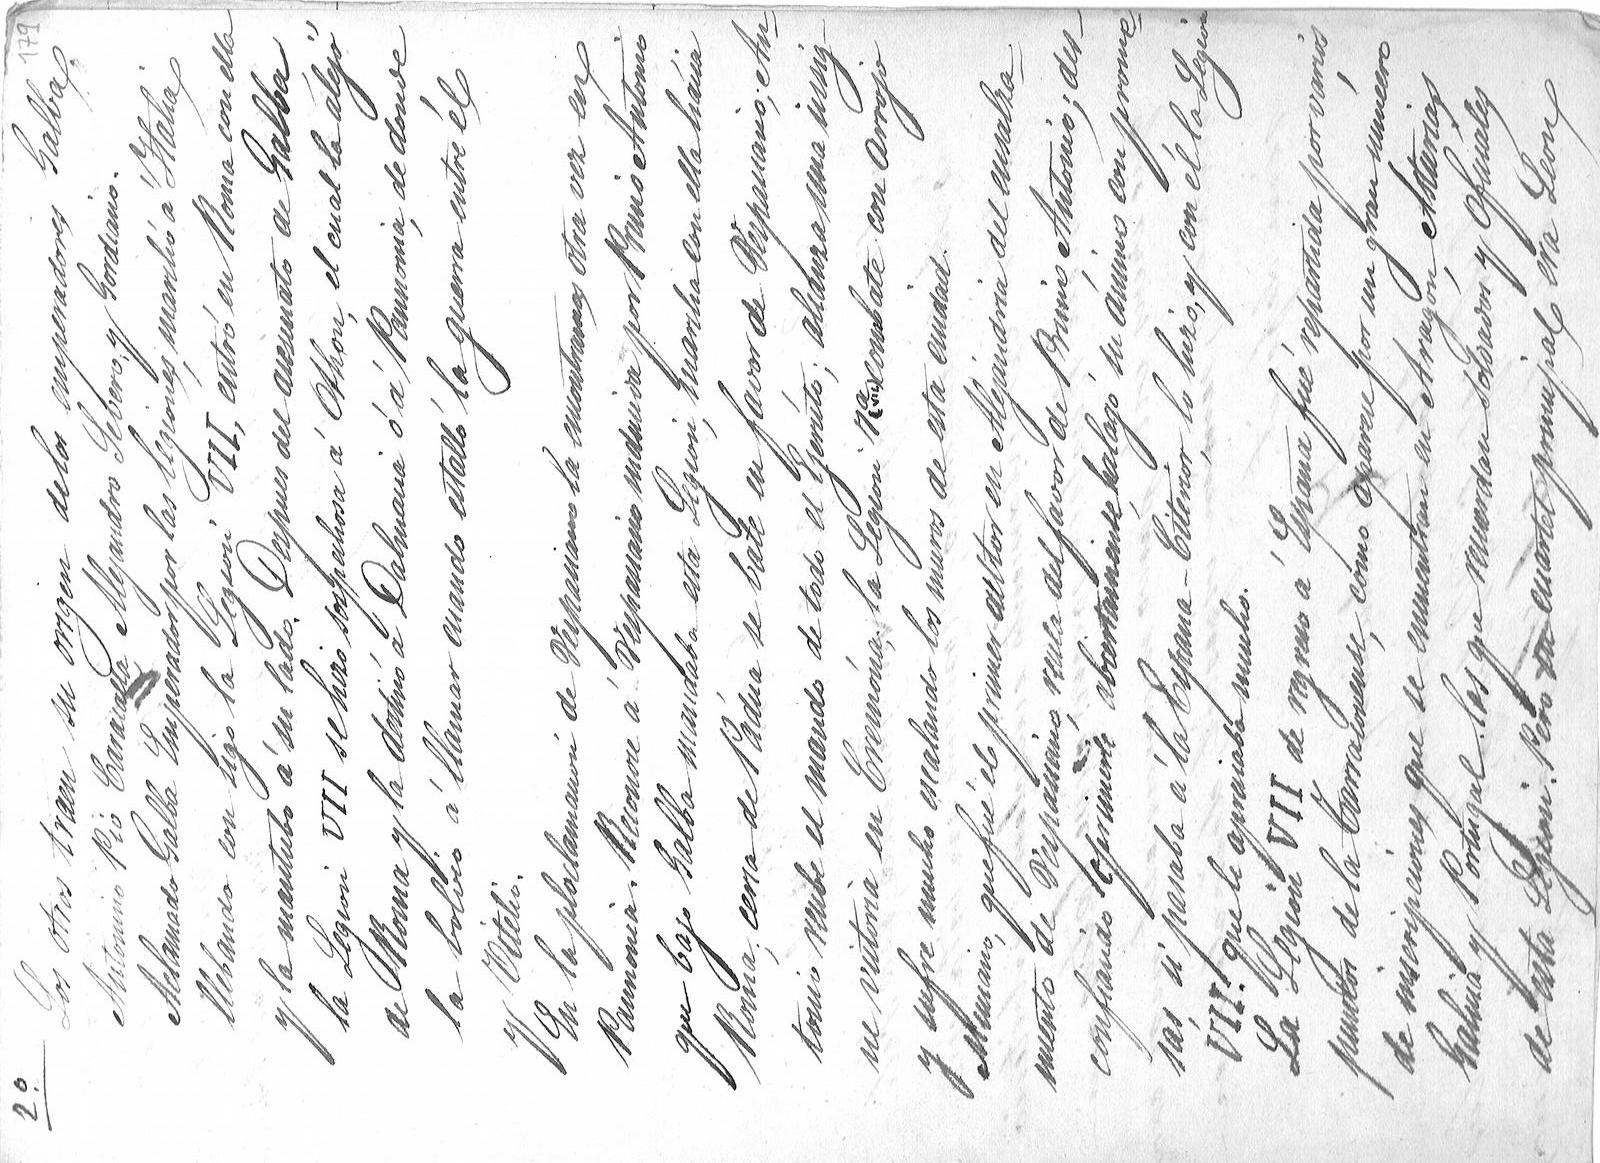 179
2º
Los otros traen su origen de los emperadores Galba,
Antonino Pio Caracalla Alejandro Severo, y Gordiano.
Aclamado Galba Emperador por las legiones, marchó a Italia,
llebando con sigo la Legion VII, entró en Roma con ella
y la mantubo á su lado. Despues del asesinato de Galba
la Legion VII se hizo sospechosa á Othón, el cual la alejó
de Roma y la destinó á Dalmacia ó á Pannonia, de donde
la bolvió á llamar cuando estalló la guerra entre él
y Vitelio.
En la proclamacion de Vespasiano la encontramos otra vez en
Pannonia. Reconoce á Vespasiano inducida por Primo Antonio
que bajo Galba mandaba esta Legion, marcha con ella hácia
Roma, cerca de Pádua se bate en favor de Vespasiano; An-
tonio recibe el mando de todo el Ejército; alcanza una insig-
ne victoria en Cremona, la Legion 7a (VII) combate con arrojo
y sufre mucho escalando los muros de esta ciudad.
Muciano, que fué el primer autor en Alejandria del ensalza-
miento de Vespasiano recela del favor de Primo Antonio; des-
confiando oprimirle abiertamente halagó su animo con prome-
sas si pasaba á la España-Citerior, lo hizo, y con él la Legion
VII. que le apreciaba mucho.
La Legion VII de regreso á España fué repartida por varios
puntos de la Tarraconense, como aparece por un gran número
de inscripciones que se encuentran en Aragón, Asturias,
Galicia y Portugal. las que recuerdan soldados y Oficiales
de esta Legion. Pero su cuartel principal era Leon,